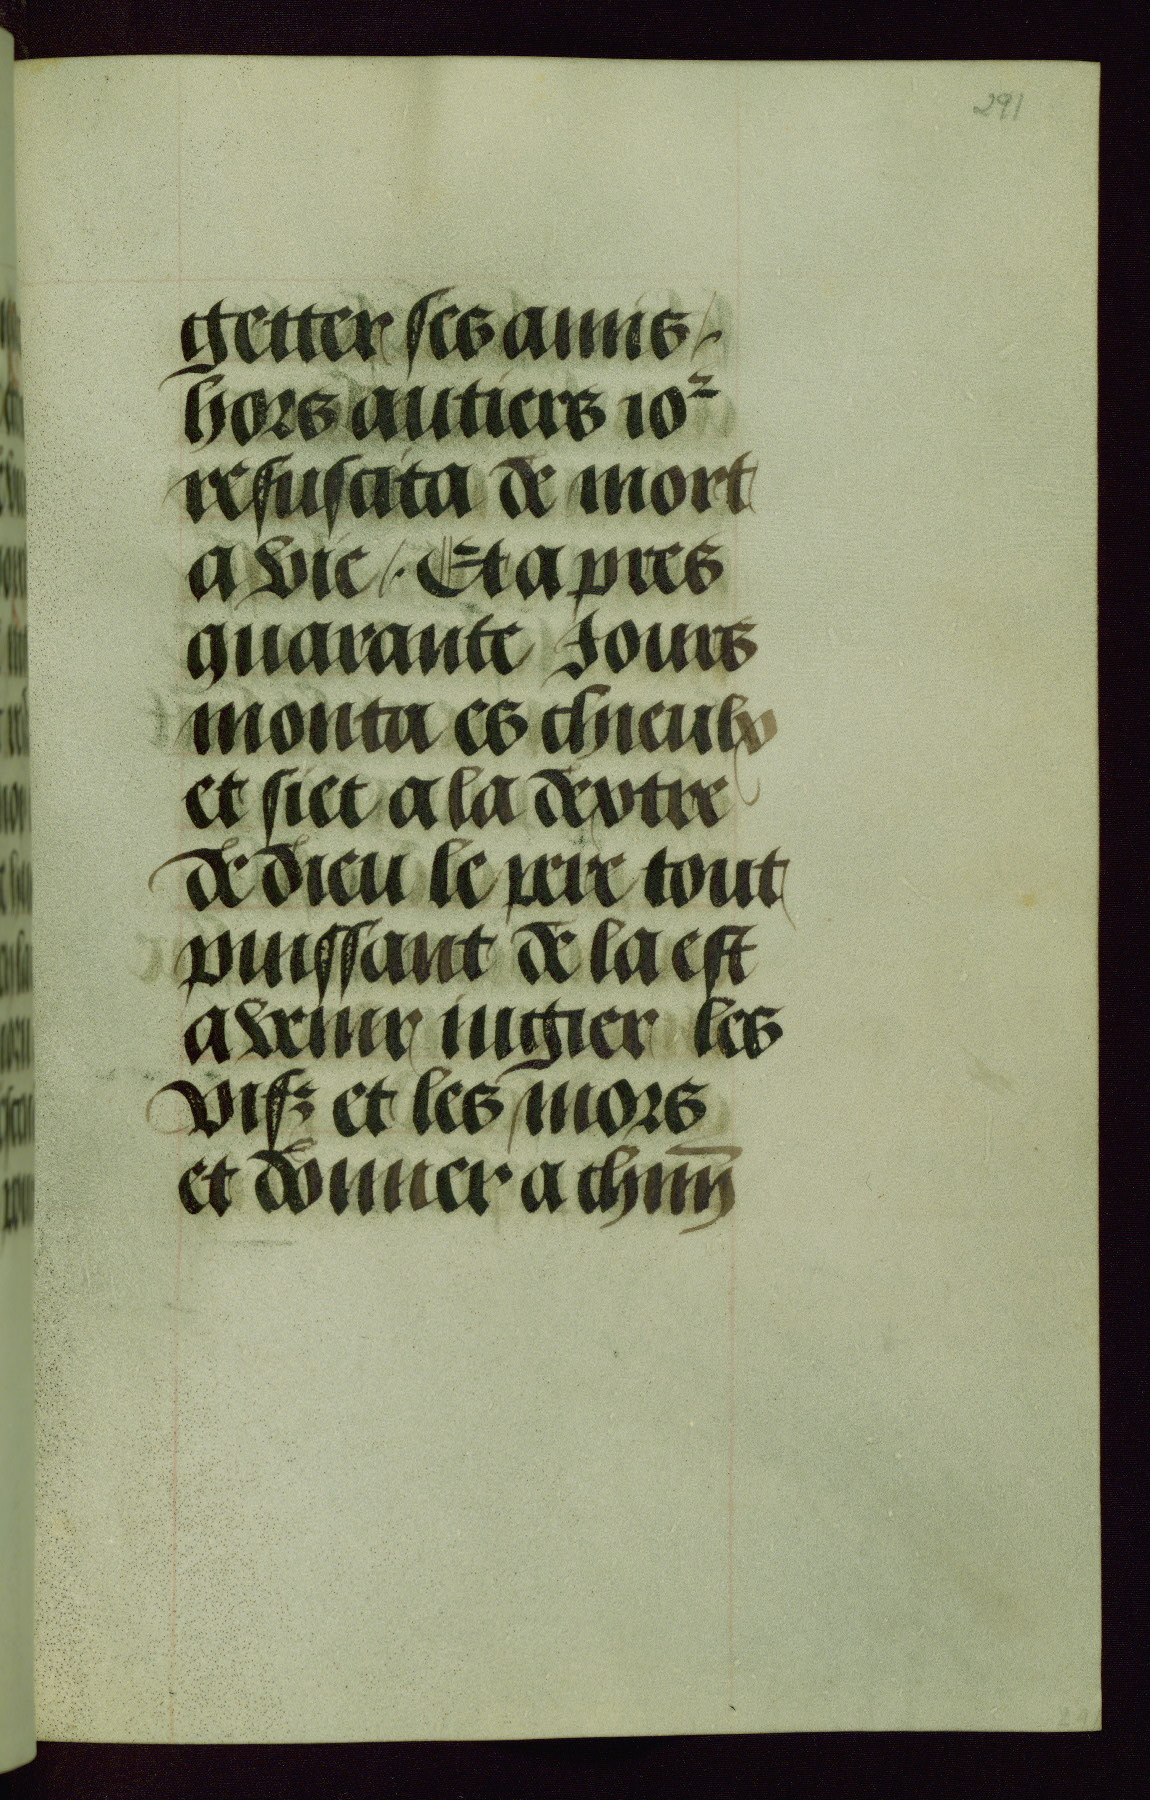 291
getter ses amis /.
hors au tiers ior
resuscita de mort
a vie /. Et apres
quarante Jours
monta es chieulx
et siet a la dextre
de dieu le pere tout
puissant de la est
a venir iugier les
vifz et les mors
et donner a chūn